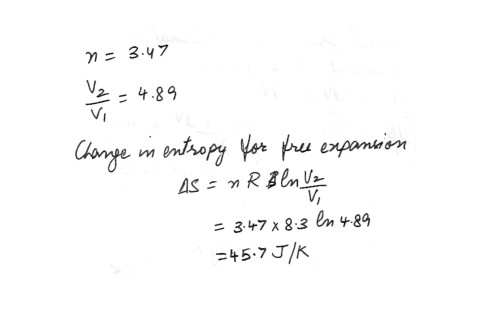 n = 3.47
V₂/V₁ = 4.89
Change in entropy for free expansion
ΔS = n R ln V₂/V₁
= 3.47 x 8.3 ln 4.89
= 45.7 J/K